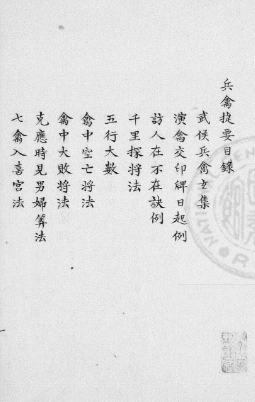 兵禽捷要目錄
武侯兵禽玄集
演禽交印綬日起例
訪人在不在訣例
千里探將法
五行大數
禽中空亡將法
禽中大敗將法
克應時見男婦筭法
七禽入喜宮法